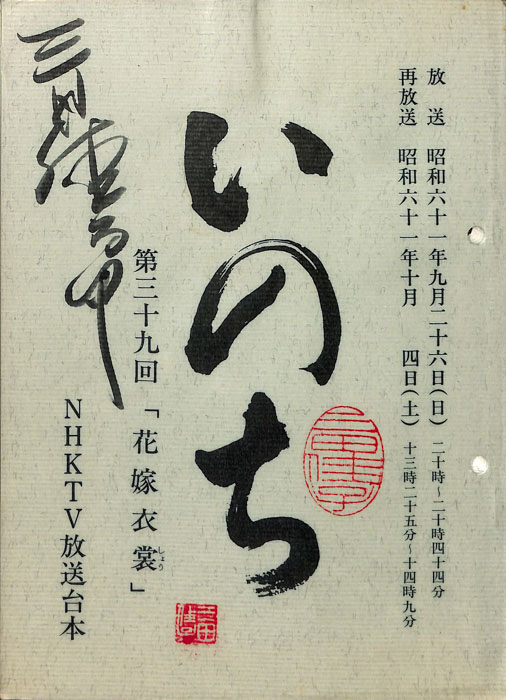 放送 昭和六十一年九月二十六日(日) 二十時～二十時四十四分
再放送 昭和六十一年十月 四日(土) 十三時二十五分～十四時九分
いのち
第三十九回 「花嫁衣裳」
しょう
NHKTV放送台本